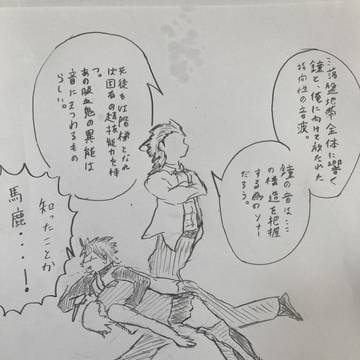 …落盤地帯全体に響く
鐘と、俺に向けて放たれた
指向性の音波。
鐘の音は…
の構造を把握
する為のソナー
だろう。
死徒もⅥ階梯となれ
ば固有の超抜能力を持
つ。
あの吸血鬼の異能は
音にまつわるもの
らしい。
知ったことか
馬鹿・・・!